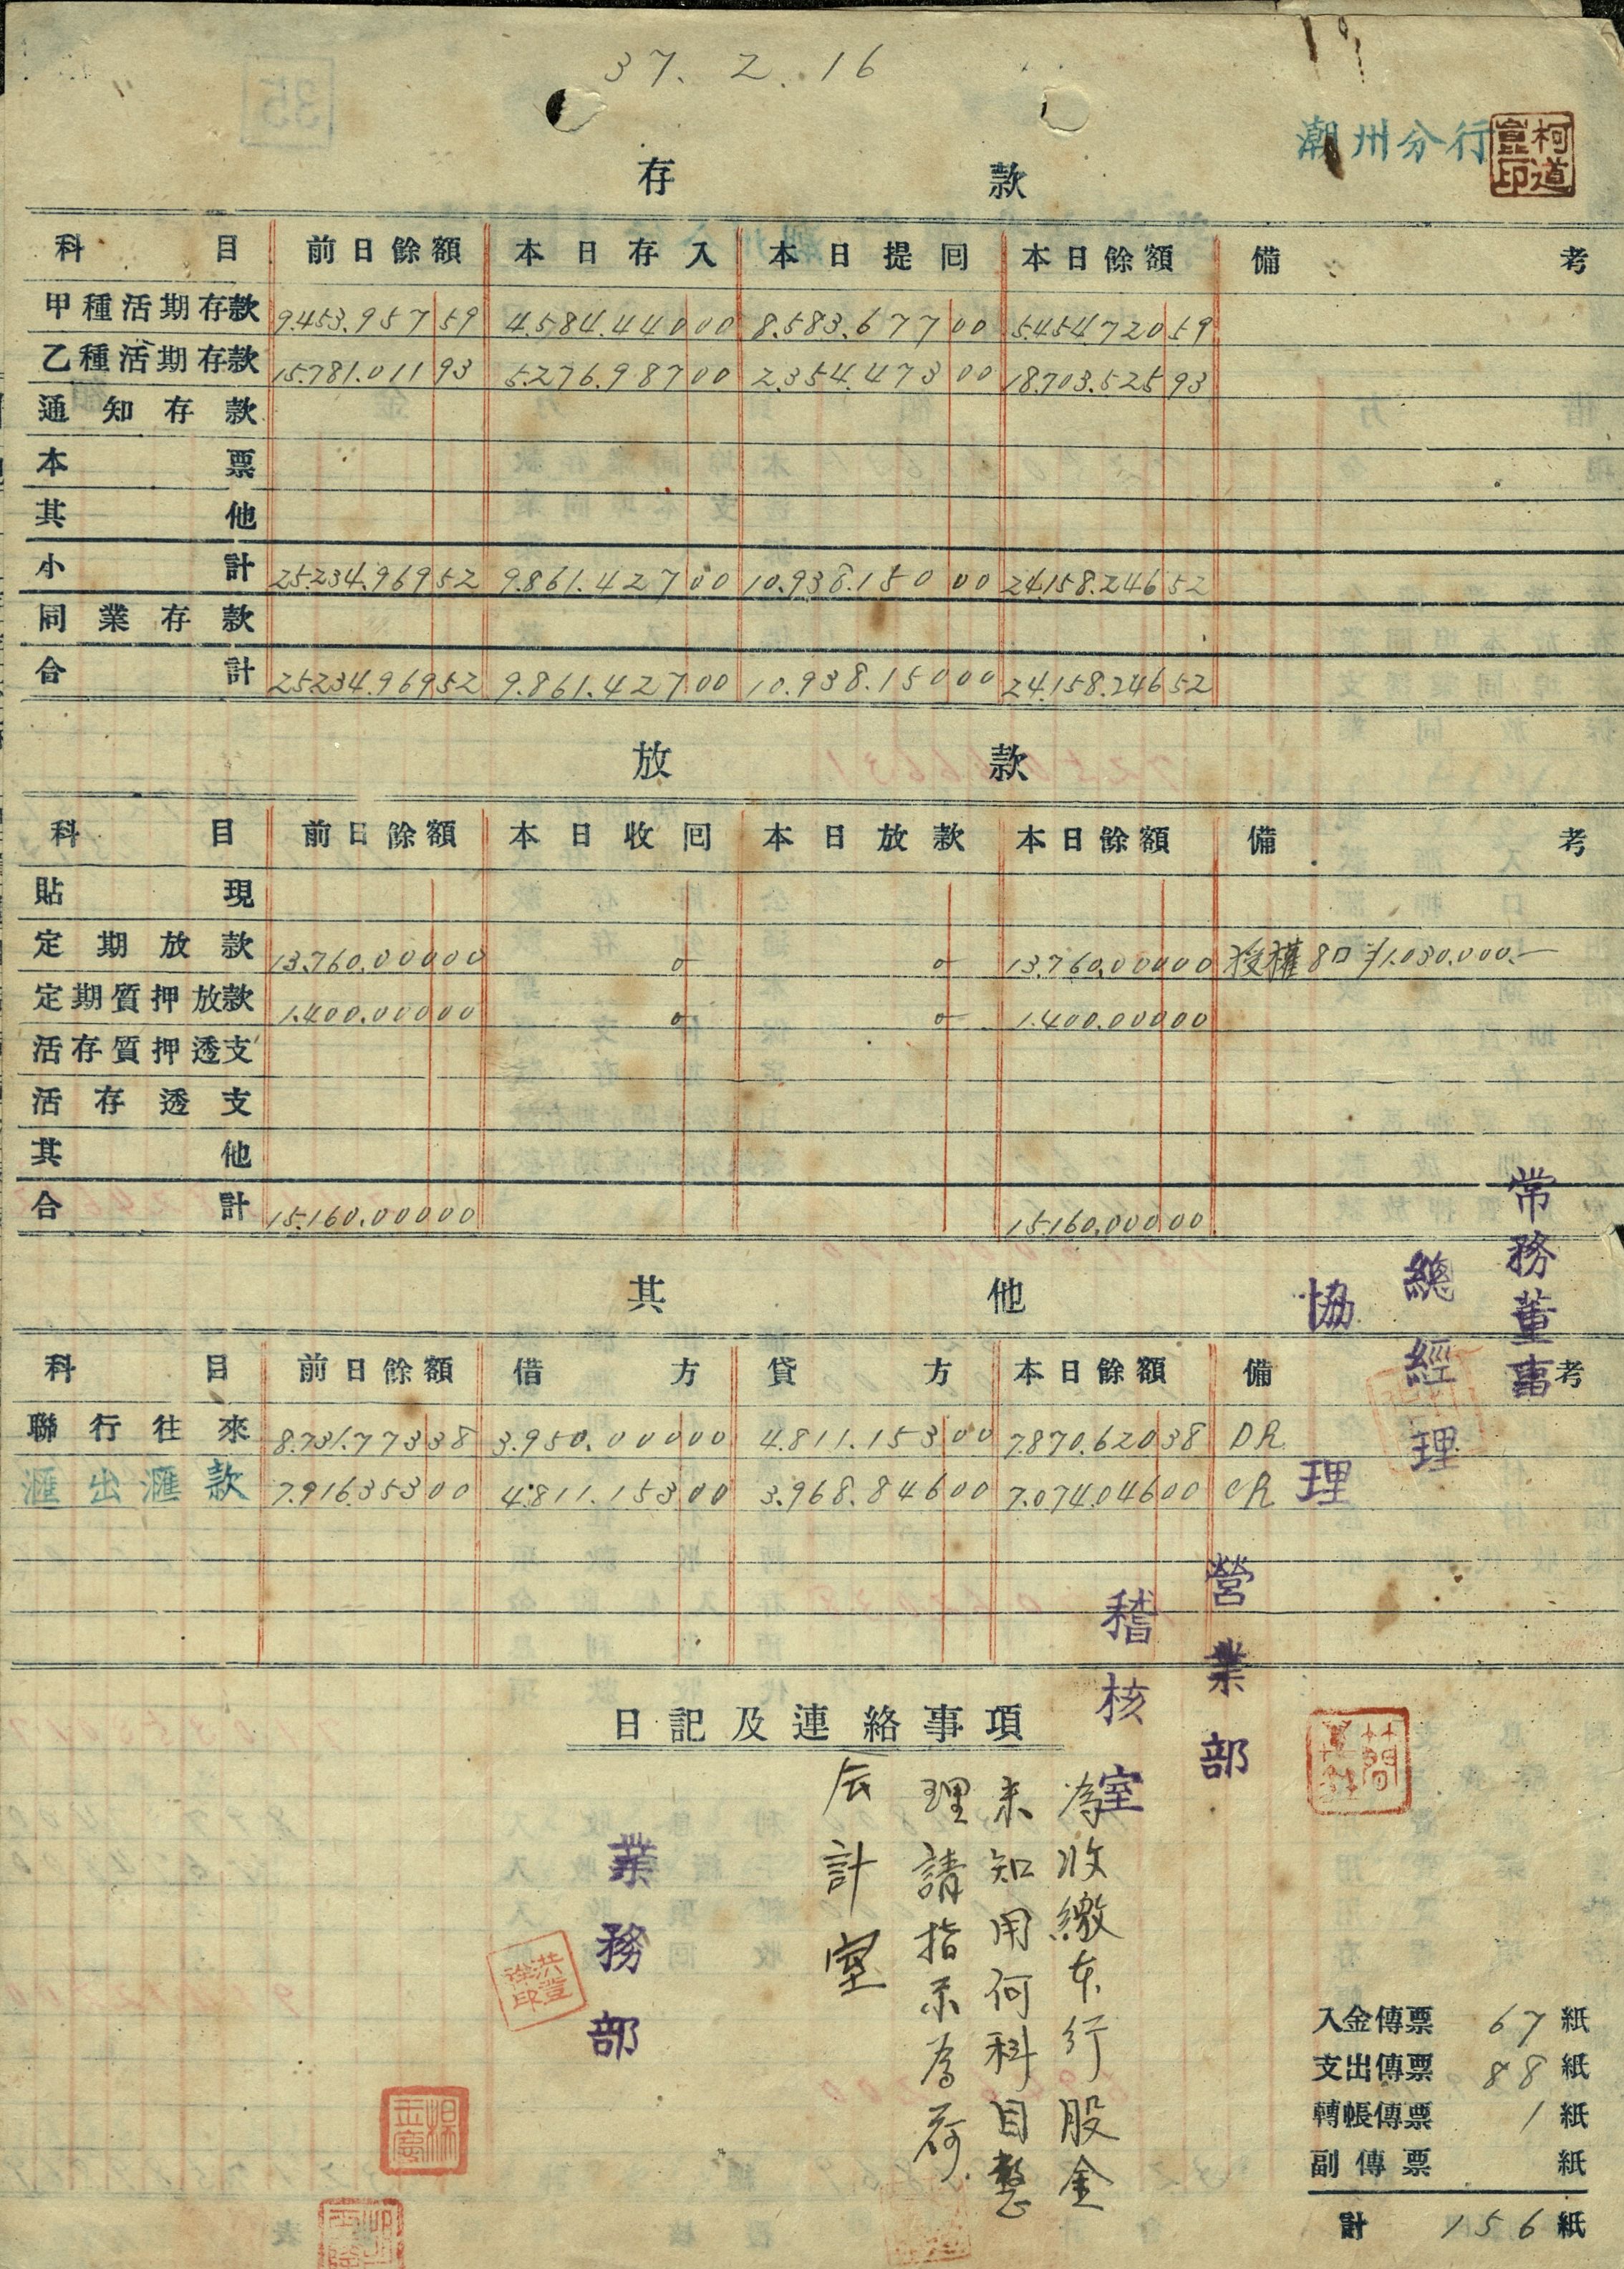 37. 2. 16
潮州分行
柯道
印
存 款
科目 前日餘額 本日存入 本日提囘 本日餘額 備考
甲種活期存款 9.453.957 59 4.584.440 00 8.583.677 00 5.454.720 59
乙種活期存款 15.781.011 93 5.276.987 00 2.354.473 00 18.703.525 93
通知存款
本票
其他
小計 25.234.969 52 9.861.427 00 10.938.150 00 24.158.246 52
同業存款
合計 25.234.969 52 9.861.427 00 10.938.150 00 24.158.246 52
放 款
科目 前日餘額 本日收囘 本日放款 本日餘額 備考
貼現
定期放款 13.760.000 00 0 0 13.760.000 00 授權 8口 ¥1.030.000.—
定期質押放款 1.400.000 00 0 0 1.400.000 00
活存質押透支
活存透支
其他
合計 15.160.000 00 15.160.000 00
其 他
科目 前日餘額 借方 貸方 本日餘額 備考
聯行往來 8.731.773 38 3.950.000 00 4.811.153 00 7.870.620 38 DR
滙出滙款 7.916.353 00 4.811.153 00 3.968.846 00 7.074.046 00 CR
常務董事
總經理
協理
營業部
稽核室
日記及連絡事項
為收繳本行股金
未知用何科目整
理請指示為荷
會計室
業務部
洪登
印
簡
楊
入金傳票 67 紙
支出傳票 88 紙
轉帳傳票 1 紙
副傳票 紙
計 156 紙